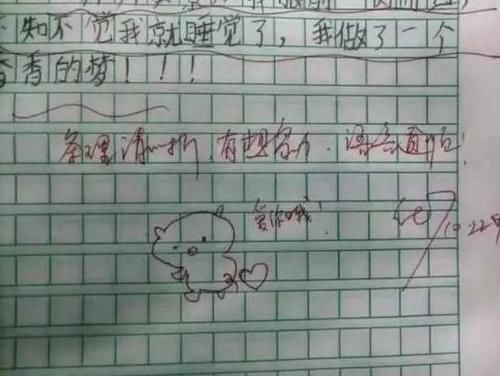 知不觉我就睡觉了，我做了一个
香香的梦！！！
条理清晰，有想象力．语言通顺！
爱你哦！
10.22